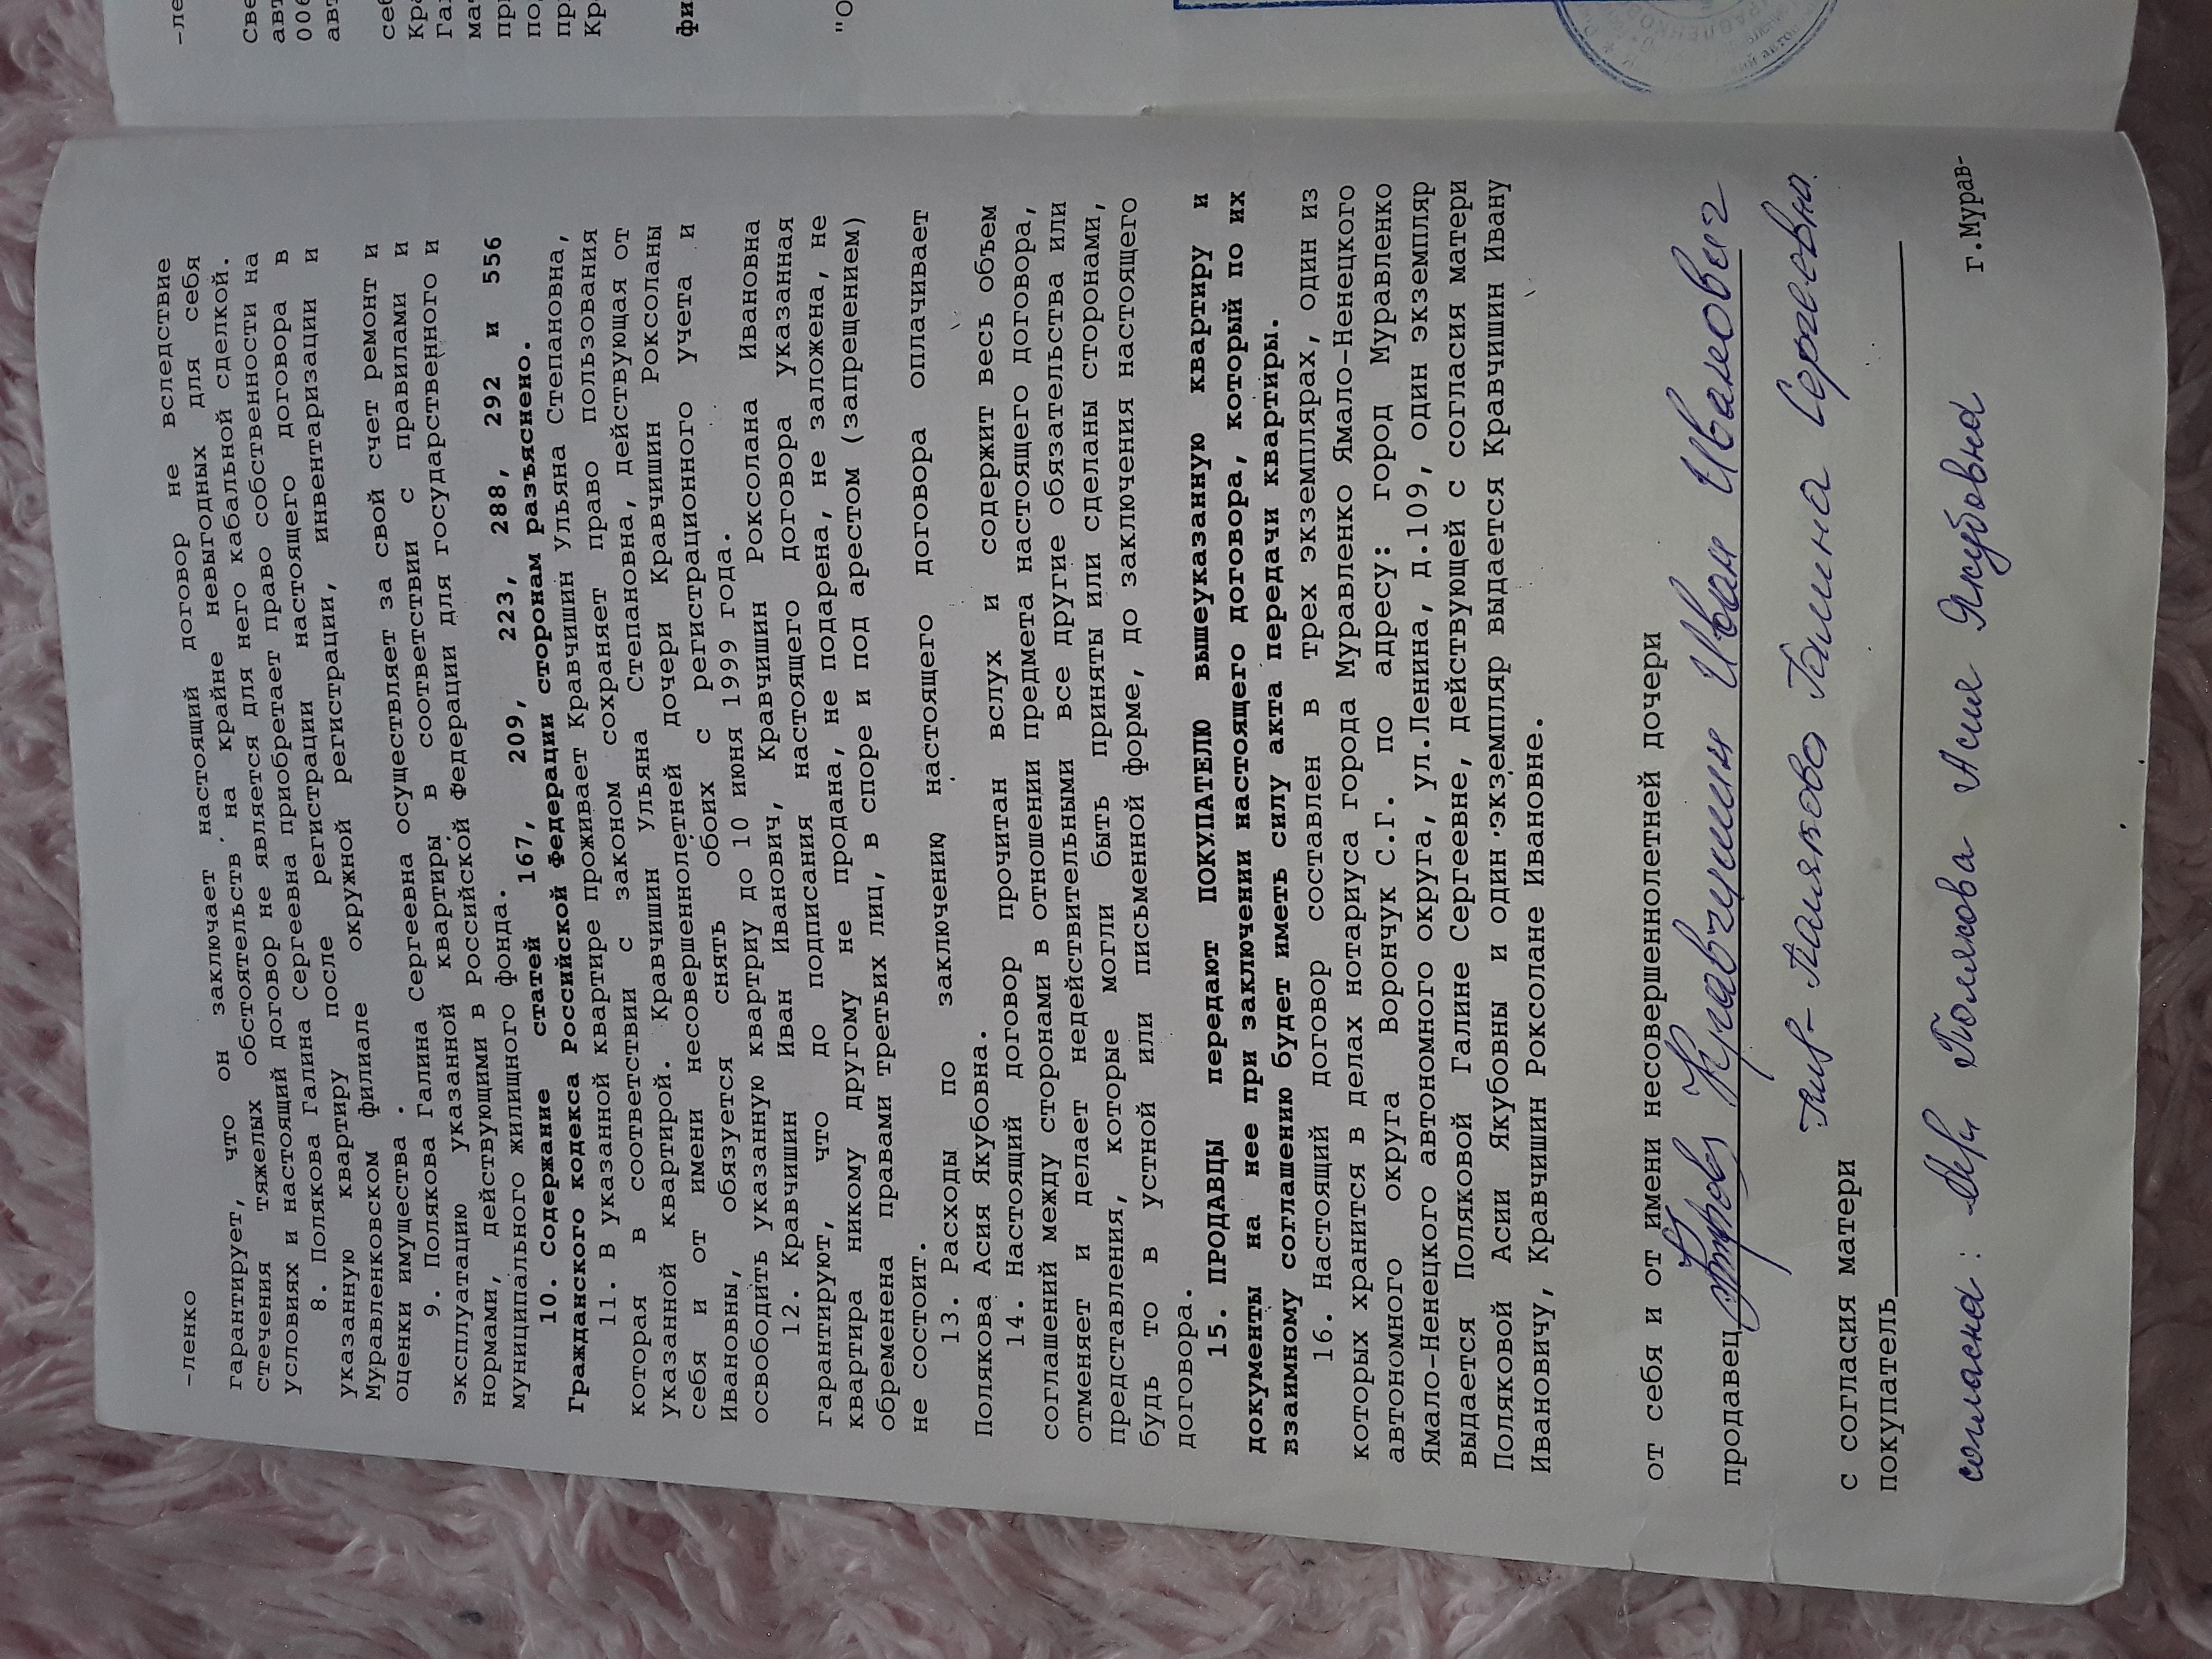 -ленко
гарантирует, что он заключает настоящий договор не вследствие
стечения тяжелых обстоятельств на крайне невыгодных для себя
условиях и настоящий договор не является для него кабальной сделкой.
8. Полякова Галина Сергеевна приобретает право собственности на
указанную квартиру после регистрации настоящего договора в
Муравленковском филиале окружной регистрации, инвентаризации и
оценки имущества .
9. Полякова Галина Сергеевна осуществляет за свой счет ремонт и
эксплуатацию указанной квартиры в соответствии с правилами и
нормами, действующими в Российской Федерации для государственного и
муниципального жилищного фонда.
10. Содержание статей 167, 209, 223, 288, 292 и 556
Гражданского кодекса Российской Федерации сторонам разъяснено.
11. В указанной квартире проживает Кравчишин Ульяна Степановна,
которая в соответствии с законом сохраняет право пользования
указанной квартирой. Кравчишин Ульяна Степановна, действующая от
себя и от имени несовершеннолетней дочери Кравчишин Роксоланы
Ивановны, обязуется снять обоих с регистрационного учета и
освободить указанную квартриу до 10 июня 1999 года.
12. Кравчишин Иван Иванович, Кравчишин Роксолана Ивановна
гарантируют, что до подписания настоящего договора указанная
квартира никому другому не продана, не подарена, не заложена, не
обременена правами третьих лиц, в споре и под арестом (запрещением)
не состоит.
13. Расходы по заключению настоящего договора оплачивает
Полякова Асия Якубовна.
14. Настоящий договор прочитан вслух и содержит весь объем
соглашений между сторонами в отношении предмета настоящего договора,
отменяет и делает недействительными все другие обязательства или
представления, которые могли быть приняты или сделаны сторонами,
будь то в устной или письменной форме, до заключения настоящего
договора.
15. ПРОДАВЦЫ передают ПОКУПАТЕЛЮ вышеуказанную квартиру и
документы на нее при заключении настоящего договора, который по их
взаимному соглашению будет иметь силу акта передачи квартиры.
16. Настоящий договор составлен в трех экземплярах, один из
которых хранится в делах нотариуса города Муравленко Ямало-Ненецкого
автономного округа Ворончук С.Г. по адресу: город Муравленко
Ямало-Ненецкого автономного округа, ул.Ленина, д.109, один экземпляр
выдается Поляковой Галине Сергеевне, действующей с согласия матери
Поляковой Асии Якубовны и один экземпляр выдается Кравчишин Ивану
Ивановичу, Кравчишин Роксолане Ивановне.
от себя и от имени несовершеннолетней дочери
продавец Кравчишин Иван Иванович
Полякова Галина Сергеевна.
с согласия матери
покупатель
согласна: Полякова Асия Якубовна
г.Мурав-
-ле
"О